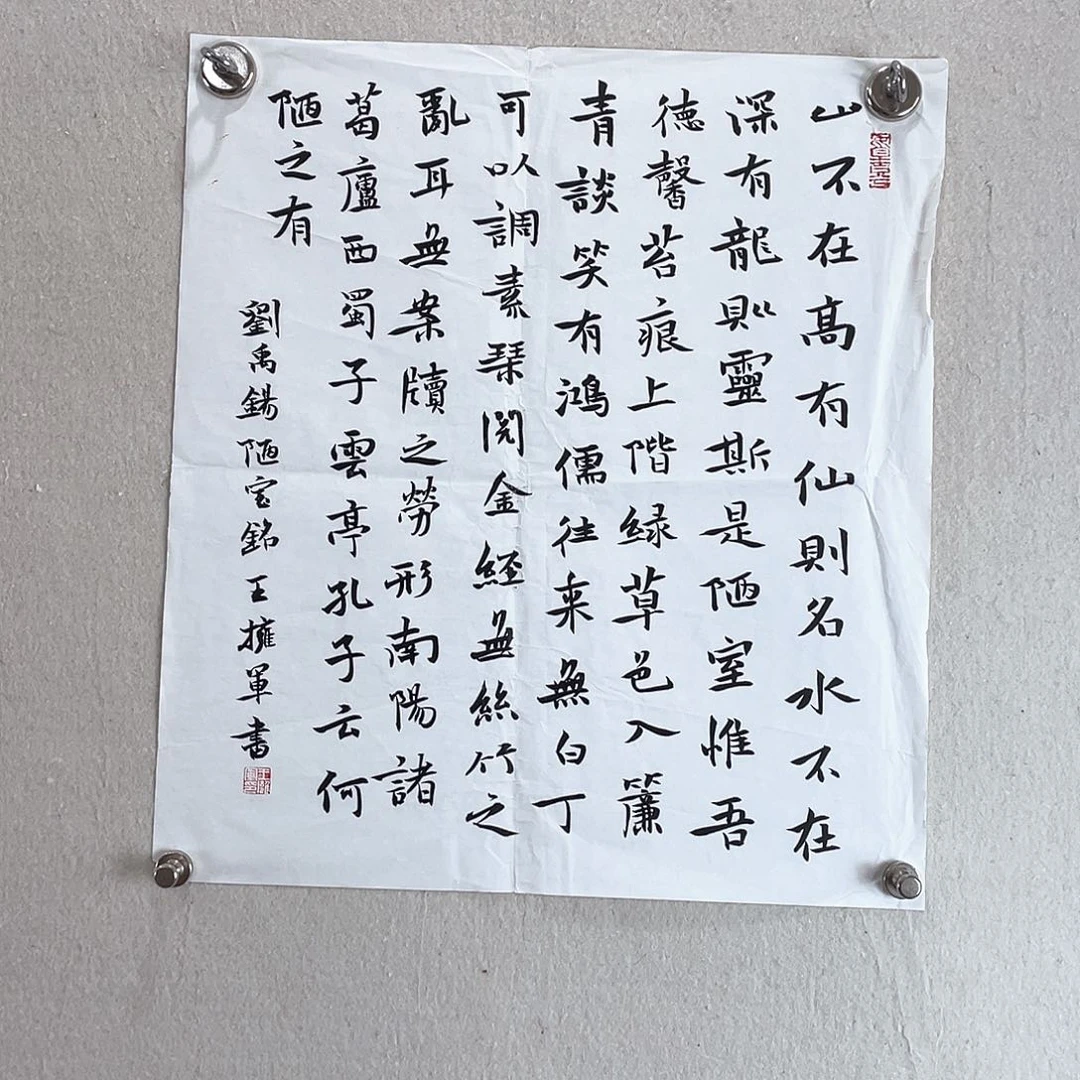 山不在高有仙則名水不在
深有龍則靈斯是陋室惟吾
德馨苔痕上階緑草色入簾
青談笑有鴻儒往来無白丁
可以調素琴閱金經無絲竹之
亂耳無案牘之勞形南陽諸
葛廬西蜀子雲亭孔子云何
陋之有
劉禹錫陋室銘王擁軍書